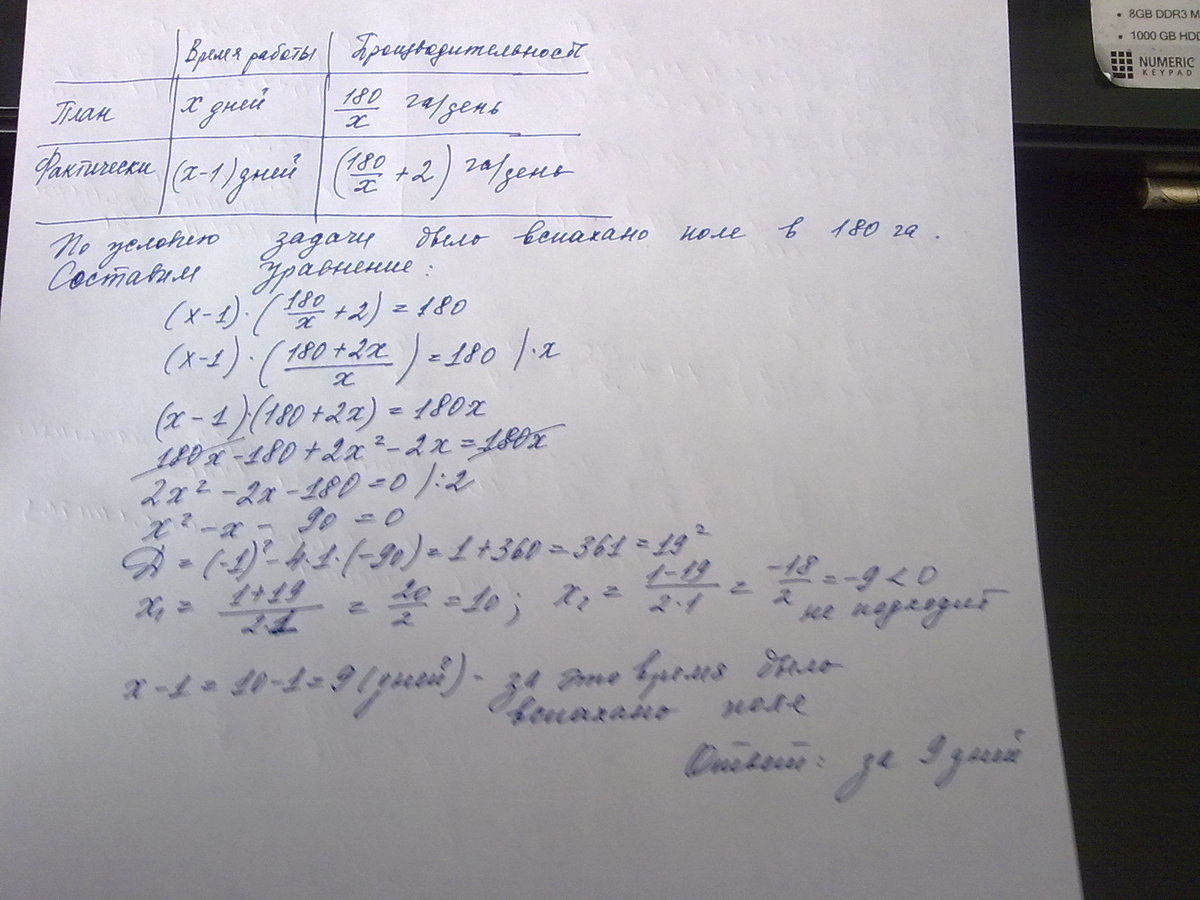 Время работы Производительность
План x дней 180/x га/день
Фактически (x-1) дней (180/x + 2) га/день
По условию задачи было вспахано поле в 180 га.
Составим уравнение:
(x-1)·(180/x + 2) = 180
(x-1)·((180+2x)/x) = 180 |·x
(x-1)·(180+2x) = 180x
180x-180+2x²-2x=180x
2x²-2x-180=0 |:2
x²-x-90=0
D=(-1)²-4·1·(-90)=1+360=361=19²
x₁ = (1+19)/(2·1) = 20/2 = 10; x₂ = (1-19)/(2·1) = -18/2 = -9 < 0
не подходит
x-1=10-1=9 (дней) - за это время было
вспахано поле
Ответ: за 9 дней
• 8GB DDR3 M
• 1000 GB HDD
NUMERIC
KEYPAD